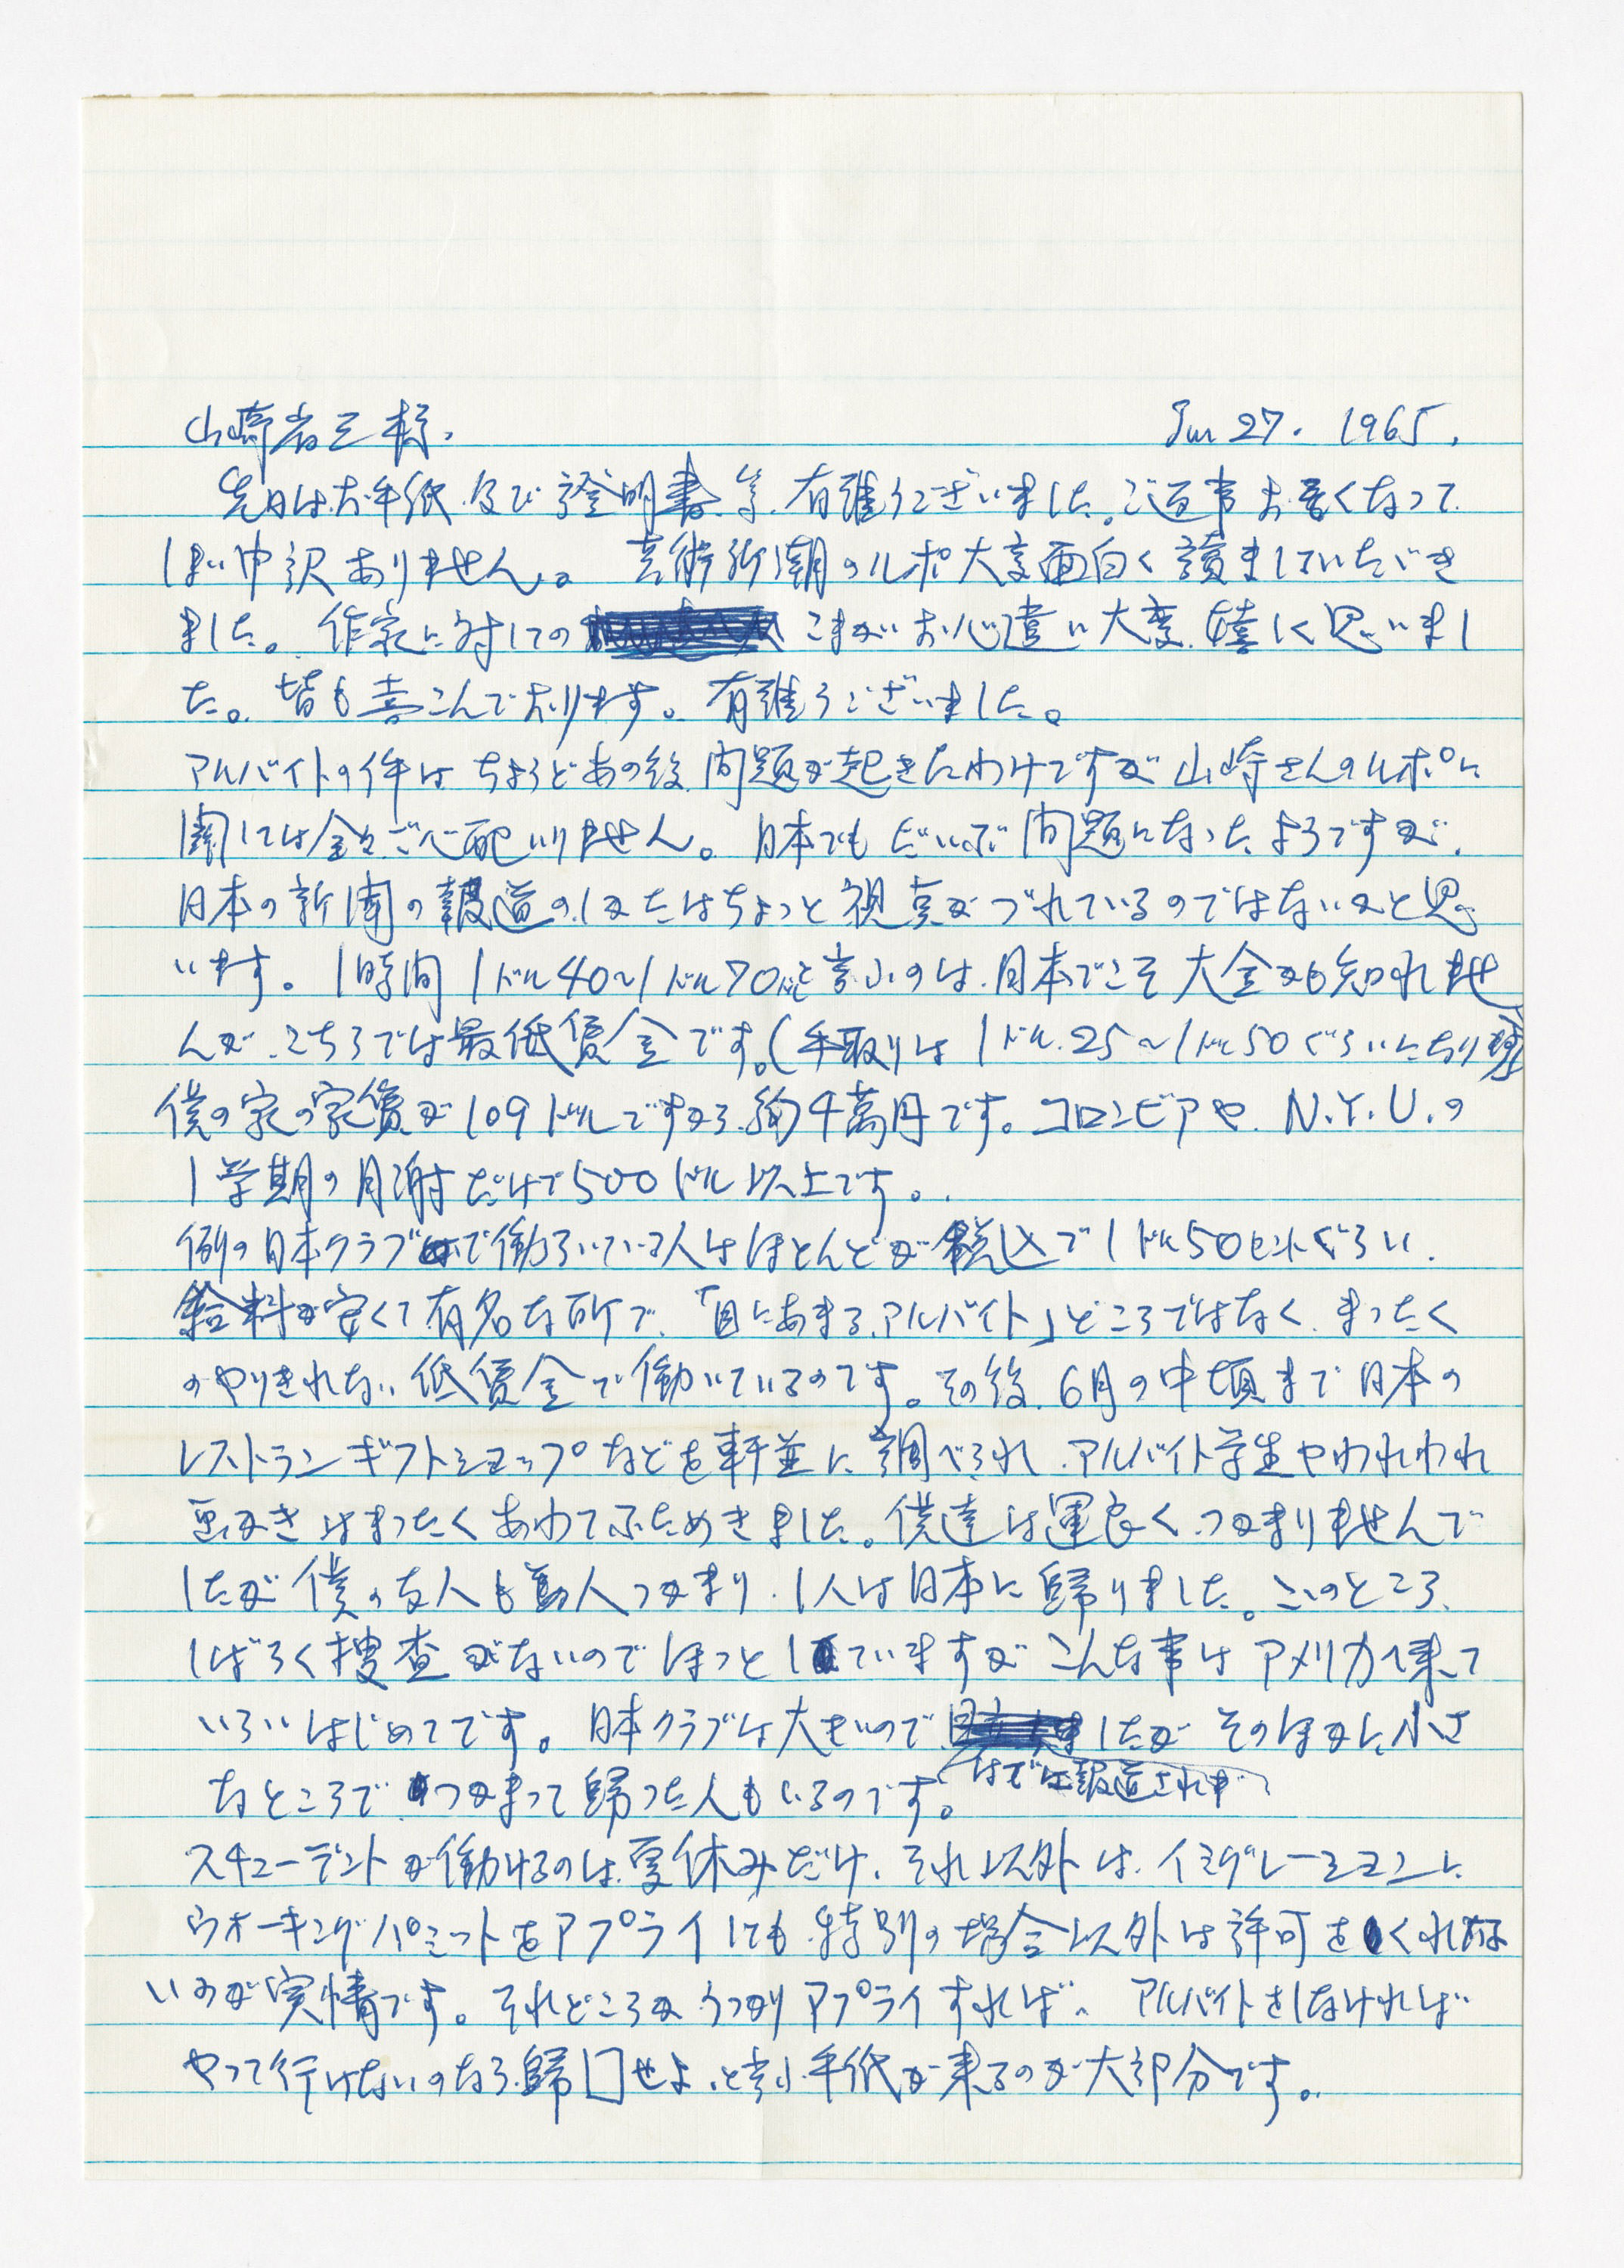 山崎省三様.　Jun 27. 1965.
先日はお手紙及び證明書等有難うございました。ご返事お書くなって
しまい申訳ありません。芸術新潮のルポ大変面白く讀ましていただき
ました。作家に対しての こまかいお心遣い大変嬉しく思いまし
た。皆も喜こんでおります。有難うございました。
アルバイトの件はちょうどあの後問題が起きたわけですが山崎さんのルポに
関しては全々ご心配いりません。日本でもだいぶ問題になったようですが、
日本の新聞の報道のしかたはちょっと視点がづれているのではないかと思
います。1時間1ドル40～1ドル70と言ふのは、日本でこそ大金かも知れませ
んが、こちらでは最低賃金です。(手取りは1ドル.25～1ドル50ぐらいになります)
僕の家の家賃が109ドルですから約4萬円です。コロンビアや N.Y.U.の
1学期の月謝だけで500ドル以上です。
例の日本クラブで働らいている人はほとんどが税込で1ドル50セントぐらい、
給料が安くて有名な所で、「目にあまるアルバイト」どころではなく、まったく
のやりきれない低賃金で働いているのです。その後、6月の中頃まで日本の
レストランギフトショップなどを軒並に調べられ、アルバイト学生やわれわれ
画かきはまったくあわてふためきました。僕達は運良くつかまりませんで
したが僕の友人も数人つかまり、1人は日本に歸りました。このところ、
しばらく捜査がないのでほっとしていますがこんな事はアメリカへ来て
いらいはじめてです。日本クラブは大きいので はでに報道されましたがそのほかに小さ
なところでつかまって歸った人もいるのです。
スチューデントが働けるのは、夏休みだけ、それ以外は、イミグレーションに
ウオーキングパミットをアプライしても特別の場合以外は許可をくれな
いのが実情です。それどころかうっかりアプライすれば、アルバイトをしなければ
やって行けないのなら歸囗せよ、と言ふ手紙が来るのが大部分です。